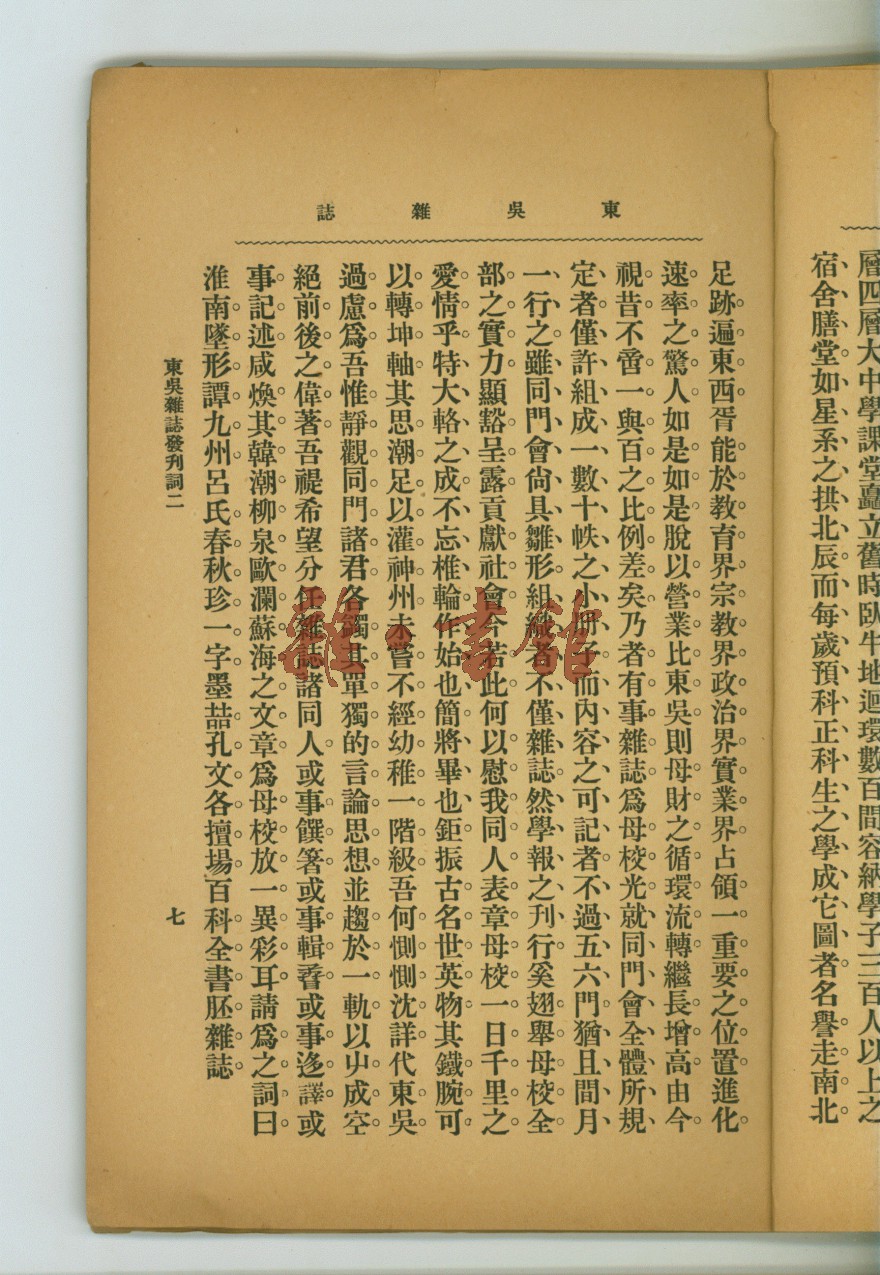 層四層大中學課堂矗立舊時臥牛地迴環數百間容納學子三百人以上之
宿舍膳堂如星系之拱北辰而每歲預科正科生之學成它圖者名譽走南北
東吳雜誌
足跡遍東西胥能於教育界宗教界政治界實業界占領一重要之位置進化
速率之驚人如是如是脫以營業比東吳則母財之循環流轉繼長增高由今
視昔不啻一與百之比例差矣乃者有事雜誌爲母校光就同門會全體所規
定者僅許組成一數十帙之小冊子而內容之可記者不過五六門猶且間月
一行之雖同門會尙具雛形組織者不僅雜誌然學報之刊行奚翅舉母校全
部之實力顯豁呈露貢獻社會今若此何以慰我同人表章母校一日千里之
愛情乎特大輅之成不忘椎輪作始也簡將畢也鉅振古名世英物其鐵腕可
以轉坤軸其思潮足以灌神州未嘗不經幼稚一階級吾何惻惻沈詳代東吳
過慮爲吾惟靜觀同門諸君各蠲其單獨的言論思想並趨於一軌以屮成空
絕前後之偉著吾禔希望分任雜誌諸同人或事饌箸或事輯香或事迻譯或
事記述咸煥其韓潮柳泉歐瀾蘇海之文章爲母校放一異彩耳請爲之詞曰
淮南墜形譚九州呂氏春秋珍一字墨喆孔文各擅場百科全書胚雜誌
東吳雜誌發刊詞二
七
雜·書館